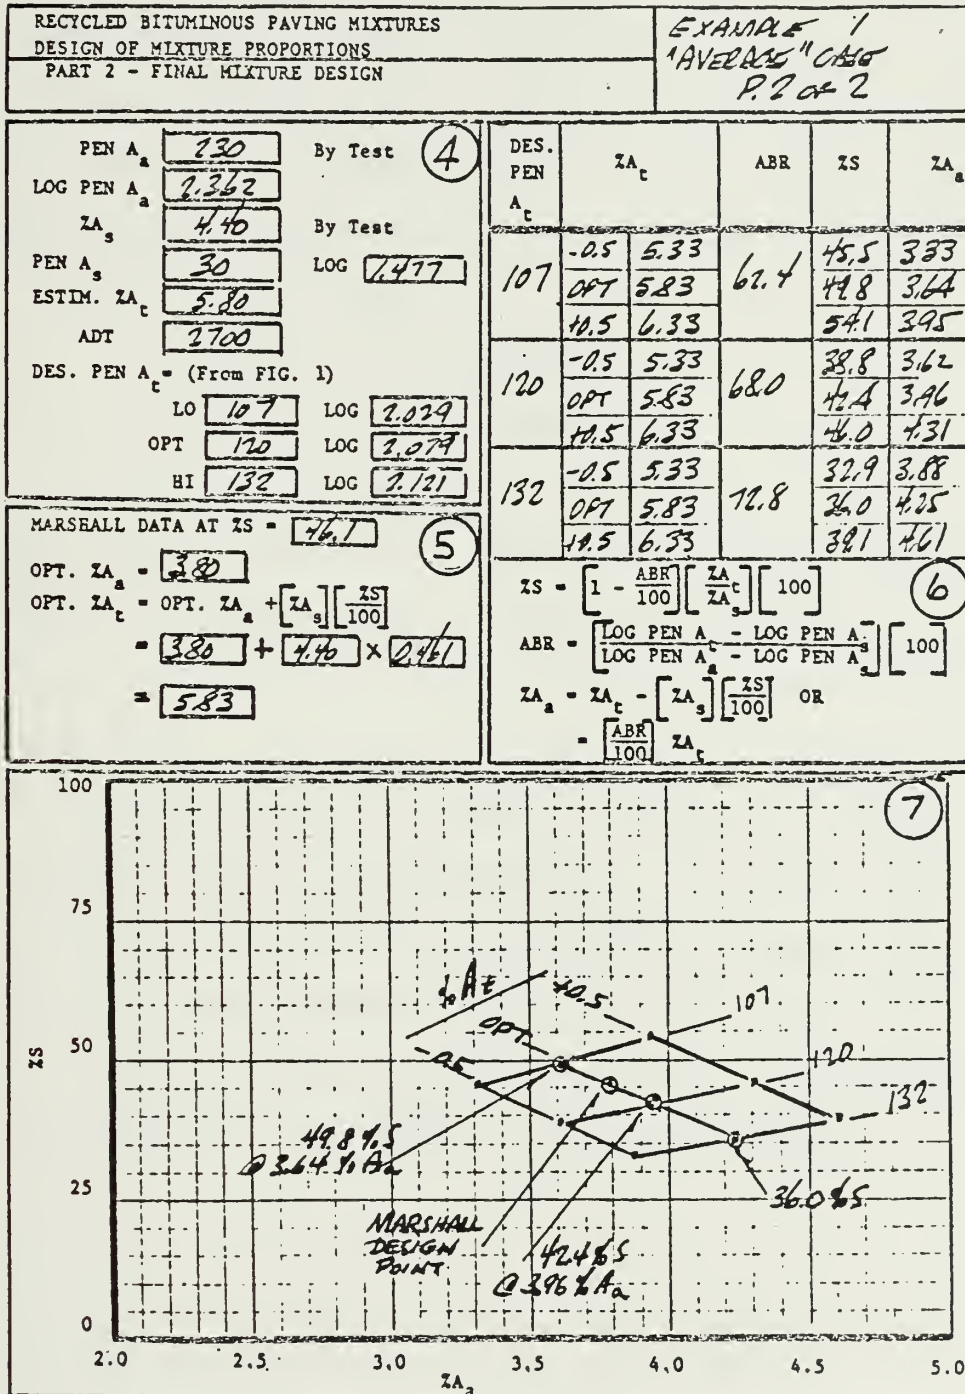 RECYCLED BITUMINOUS PAVING MIXTURES
DESIGN OF MIXTURE PROPORTIONS
PART 2 - FINAL MIXTURE DESIGN
EXAMPLE 1
"AVERAGE" CASE
P. 2 OF 2
4
PEN Aa 230 By Test
LOG PEN Aa 2.362
%As 4.40 By Test
PEN As 30 LOG 1.477
ESTIM. %At 5.80
ADT 2700
DES. PEN At = (From FIG. 1)
LO 107 LOG 2.029
OPT 120 LOG 2.079
HI 132 LOG 2.121
5
MARSHALL DATA AT %S = 46.1
OPT. %Aa = 3.80
OPT. %At = OPT. %Aa + [%As] [%S/100]
= 3.80 + 4.40 × 0.461
= 5.83
DES. PEN At %At ABR %S %Aa
107 -0.5 5.33 62.4 45.5 3.33
OPT 5.83 49.8 3.64
+0.5 6.33 54.1 3.95
120 -0.5 5.33 68.0 38.8 3.62
OPT 5.83 42.4 3.96
+0.5 6.33 46.0 4.31
132 -0.5 5.33 72.8 32.9 3.88
OPT 5.83 36.0 4.25
+0.5 6.33 39.1 4.61
6
%S = [1 - ABR/100] [%At/%As] [100]
ABR = [LOG PEN At - LOG PEN As / LOG PEN Aa - LOG PEN As] [100]
%Aa = %At - [%As] [%S/100] OR
= [ABR/100] %At
7
100
75
50
25
0
%S
% At
-0.5
OPT
+0.5
107
120
132
49.8 % S
@ 3.64 % Aa
MARSHALL
DESIGN
POINT
42.4 % S
@ 3.96 % Aa
36.0 % S
2.0 2.5 3.0 3.5 4.0 4.5 5.0
%Aa